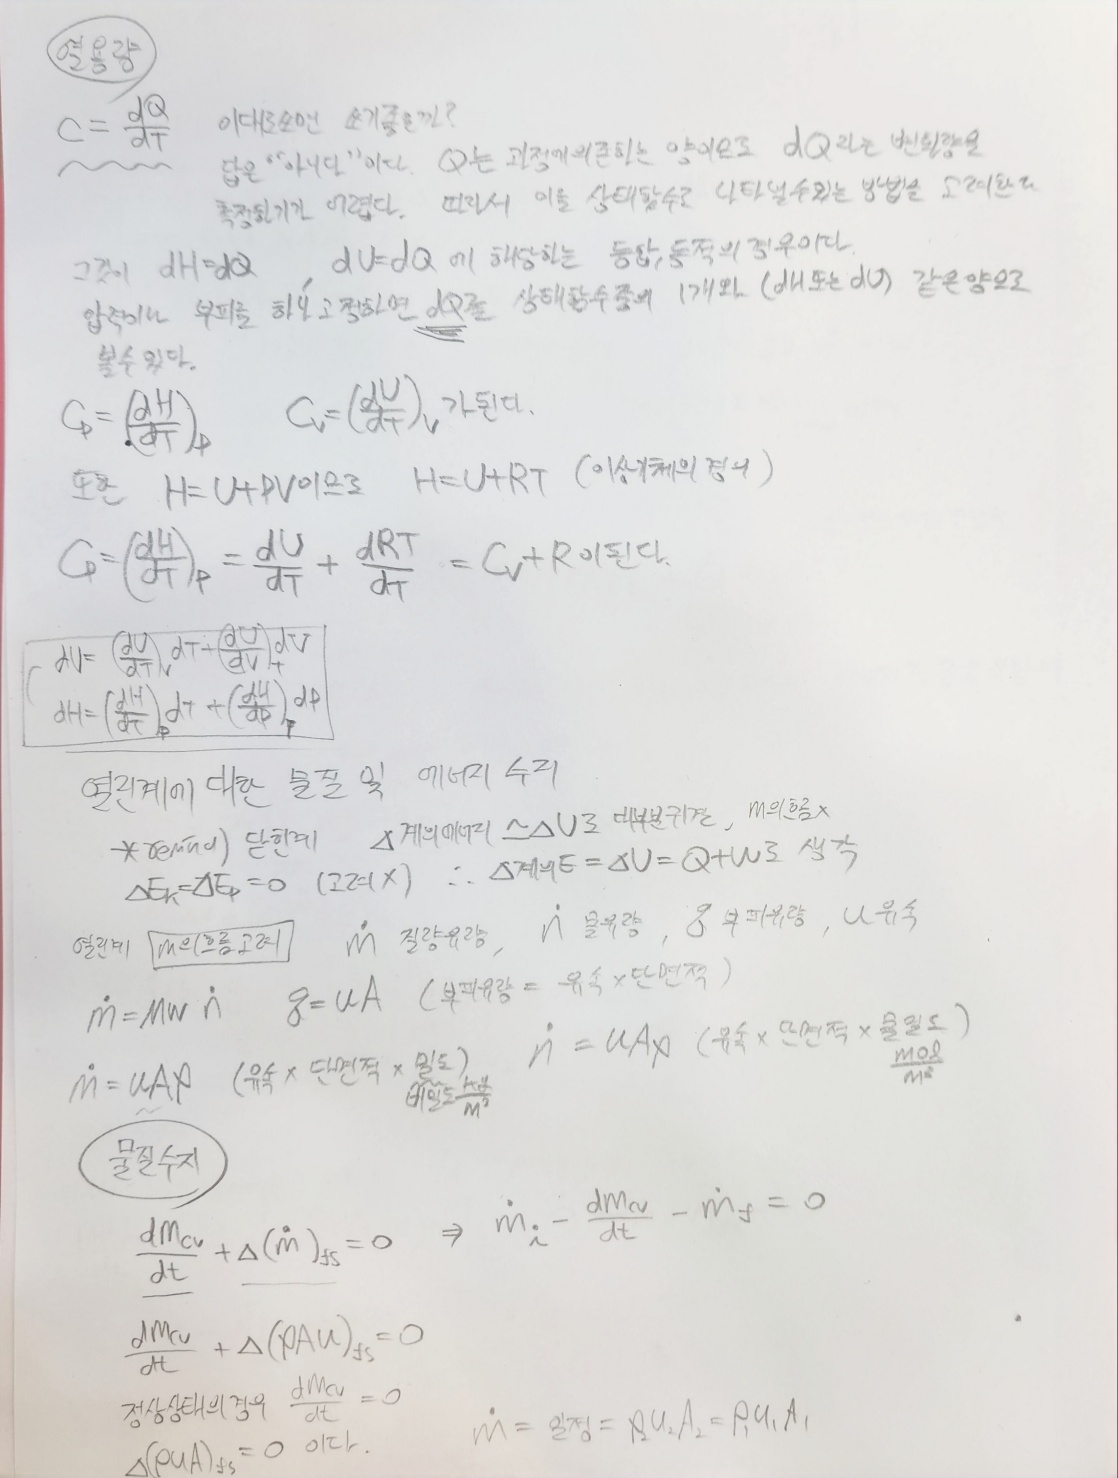 열용량
C = dQ/dT 이대로쓰면 쓰기좋을까?
답은 "아니다"이다. Q는 과정에의존하는 양이므로 dQ라는 변화량을
측정하기가 어렵다. 따라서 이를 상태함수로 나타낼수있는 방법을 고려한다
그것이 dH=dQ, dU=dQ에 해당하는 등압,등적의 경우이다.
압력이나 부피를 하나 고정하면 dQ를 상태함수중의 1개와 (dH또는 dU) 같은양으로
볼수 있다.
Cp = (dH/dT)p Cv = (dU/dT)v 가된다.
또한 H=U+PV이므로 H=U+RT (이상기체의 경우)
Cp = (dH/dT)p = dU/dT + dRT/dT = Cv+R이된다.
dU = (dU/dT)v dT + (dU/dV)T dV
dH = (dH/dT)p dT + (dH/dP)T dP
열린계에 대한 물질 및 에너지 수지
* remind) 닫힌계 Δ계의에너지 ≃ΔU로 대부분귀결, m의흐름x
ΔEk=ΔEp=0 (고려X) ∴ Δ계의E = ΔU = Q+W로 생각
열린계 m의흐름고려 ṁ 질량유량, ṅ 몰유량, q 부피유량, u 유속
ṁ = Mw ṅ q = uA (부피유량 = 유속×단면적)
ṁ = uAρ (유속 × 단면적 × 밀도) ṅ = uAρ (유속 × 단면적 × 몰밀도)
kg/m³ mol/m³
물질수지
dMcv/dt + Δ(ṁ)fs = 0 ⇒ ṁi − dMcv/dt − ṁf = 0
dMcv/dt + Δ(ρAu)fs = 0
정상상태의경우 dMcv/dt = 0
Δ(ρuA)fs = 0 이다. ṁ = 일정 = ρ₂u₂A₂ = ρ₁u₁A₁